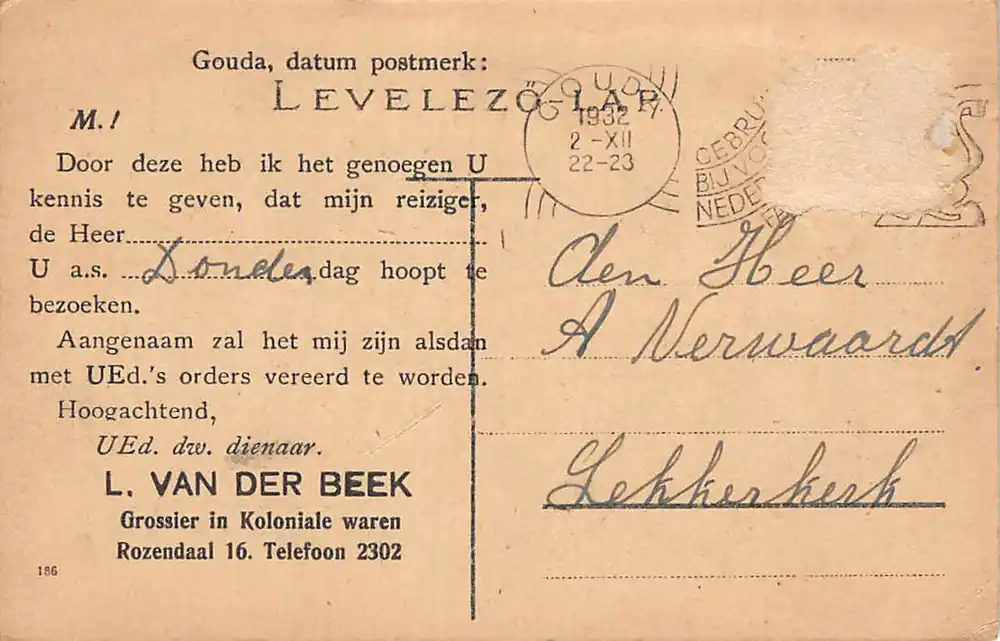 Gouda, datum postmerk:
LEVELEZŐ-LAP
M.!
Door deze heb ik het genoegen U
kennis te geven, dat mijn reiziger,
de Heer
U a.s. Donderdag hoopt te
bezoeken.
Aangenaam zal het mij zijn alsdan
met UEd.'s orders vereerd te worden.
Hoogachtend,
UEd. dw. dienaar.
L. VAN DER BEEK
Grossier in Koloniale waren
Rozendaal 16. Telefoon 2302
186
GOUDA
1932
2-XII
22-23
BIJ
den Heer
A Verwaardt
Lekkerkerk